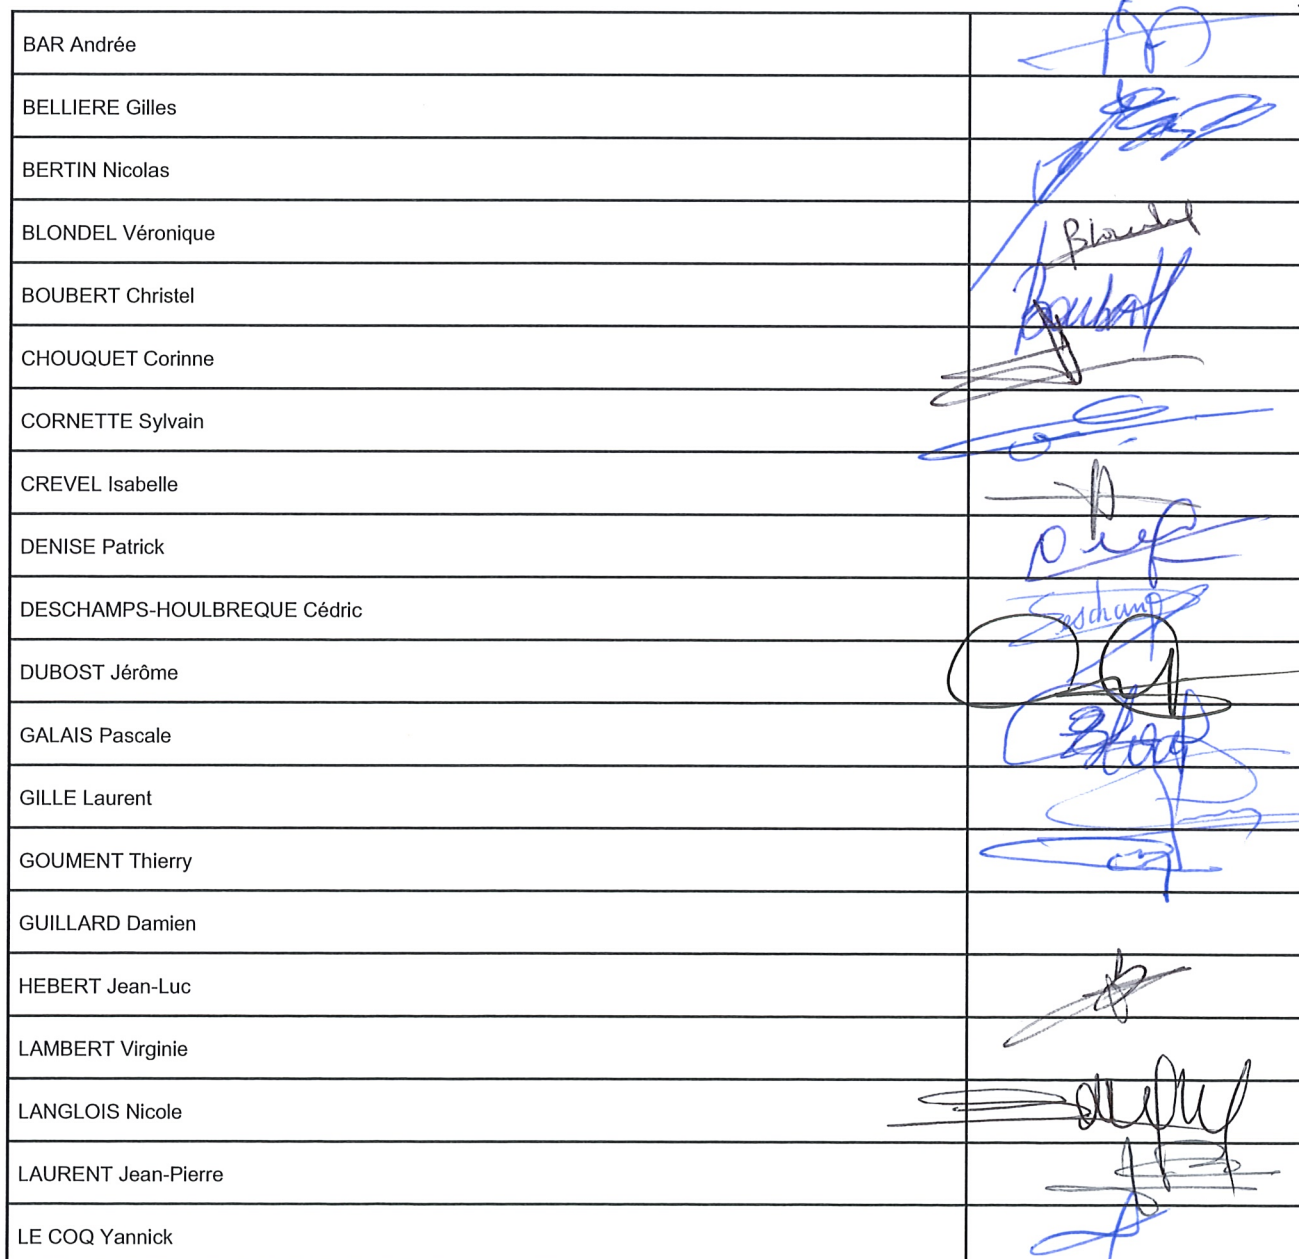 BAR Andrée
BELLIERE Gilles
BERTIN Nicolas
BLONDEL Véronique
Blondel
BOUBERT Christel
Boubert
CHOUQUET Corinne
CORNETTE Sylvain
CREVEL Isabelle
DENISE Patrick
DESCHAMPS-HOULBREQUE Cédric
Deschamps
DUBOST Jérôme
GALAIS Pascale
GILLE Laurent
GOUMENT Thierry
GUILLARD Damien
HEBERT Jean-Luc
LAMBERT Virginie
LANGLOIS Nicole
LAURENT Jean-Pierre
LE COQ Yannick